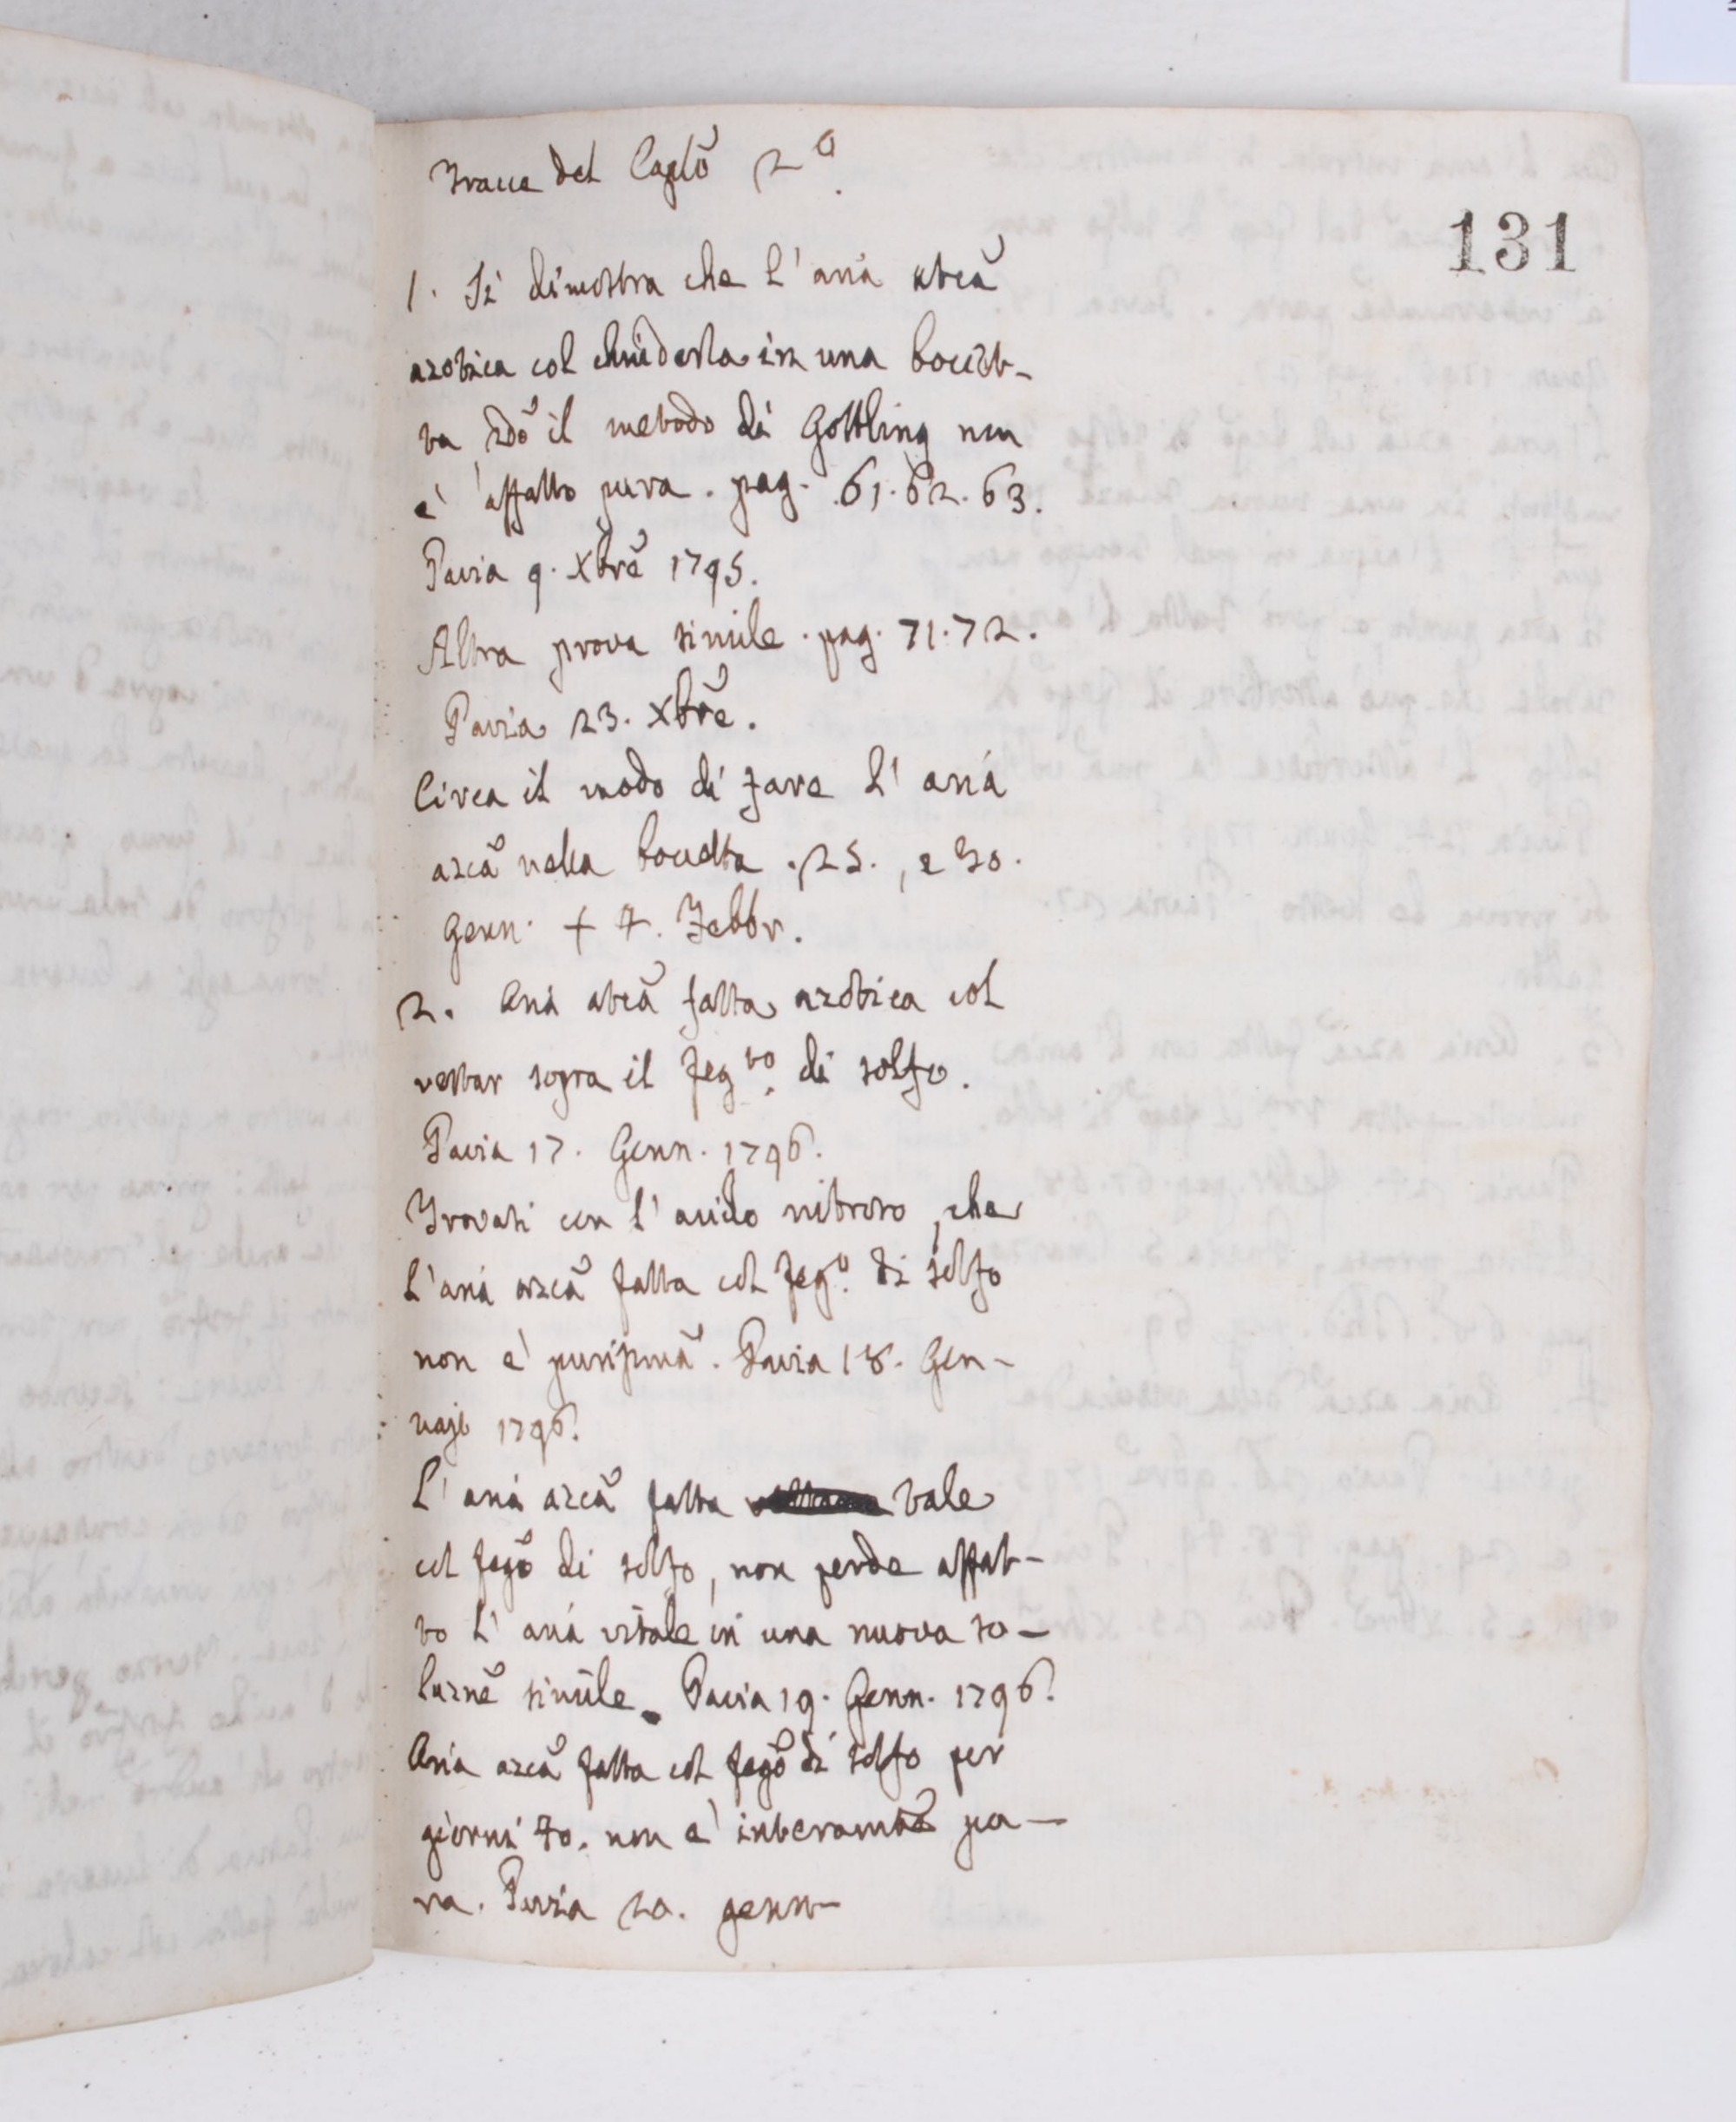 Tracce del Caplõ 2º.
131
1. Si dimostra che l'aria atcã
azotica col chiuderla in una boccet-
ta 2dõ il metodo di Gottling non
è affatto pura. pag. 61. 62. 63.
Pavia 9. Xbrẽ 1795.
Altra prova simile. pag. 71. 72.
Pavia 23. Xbrẽ.
Circa il modo di fare l'aria
azcã nella boccetta. 25., e 30.
Genn. + 7. Febbr.
2. Aria atcã fatta azotica col
restar sopra il feg.to di solfo.
Pavia 17. Genn. 1796.
Trovasi con l'acido nitroso, che
l'aria azcã fatta col feg.o di solfo
non è purissmã. Pavia 18. Gen-
najo 1796.
L'aria azcã fatta tale
col fegõ di solfo, non perde affat-
to l'aria vitale in una nuova so-
luznẽ simile. Pavia 19. Genn. 1796.
Aria azcã fatta col fegõ di solfo per
giorni 70. non è interamtẽ pu-
ra. Pavia 20. genn-